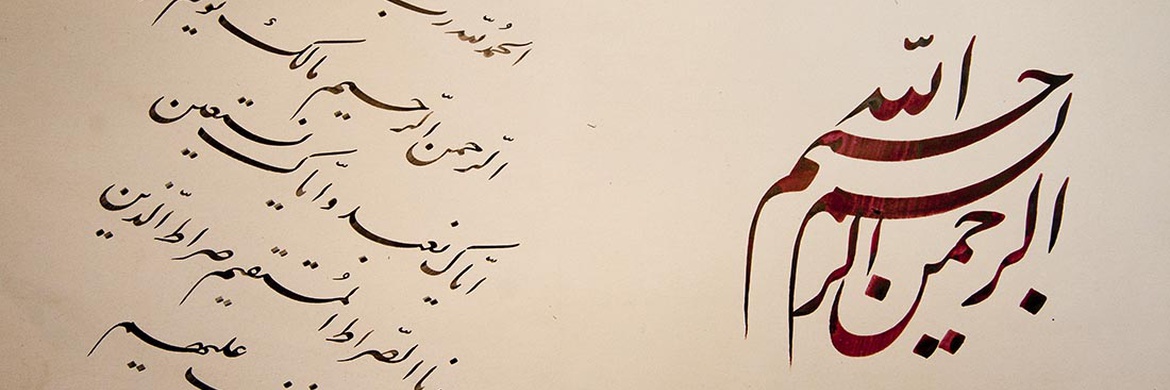 بسم الله الرحمن الرحیم
الحمدُ للّه ربّ
الرّحمن الرّحیم مالک یوم
ایّاک نعبد و ایّاک نستعین
نا الصّراط المُستقیم صراط الّذین
علیهم